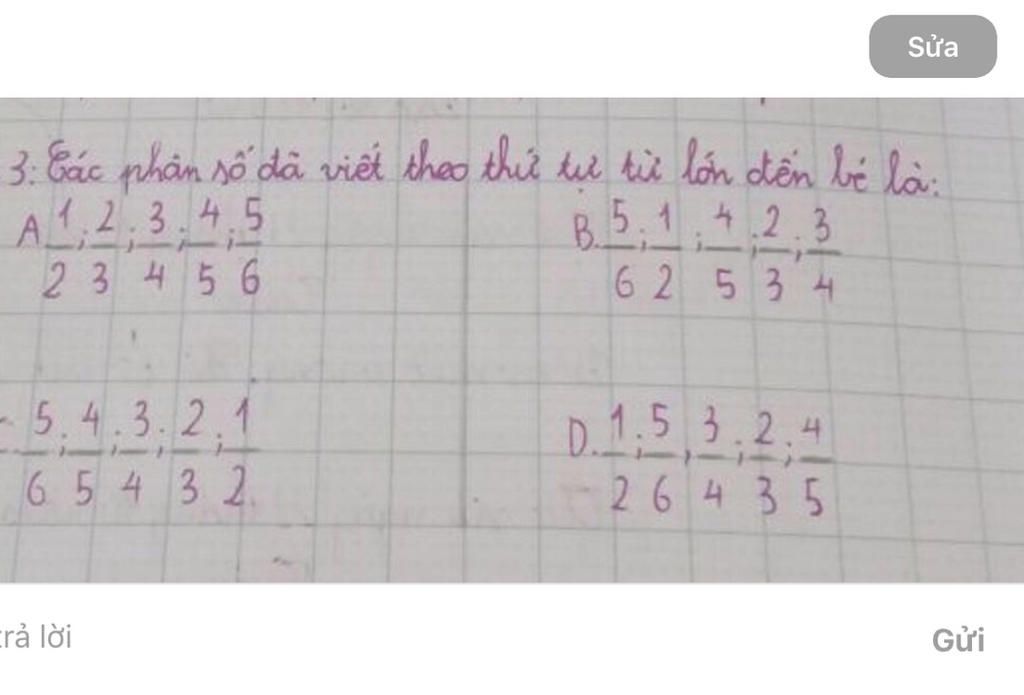 Sửa
3: Các phân số đã viết theo thứ tự từ lớn đến bé là:
A 1/2; 2/3; 3/4; 4/5; 5/6
B. 5/6; 1/2; 4/5; 2/3; 3/4
5/6; 4/5; 3/4; 2/3; 1/2.
D. 1/2; 5/6, 3/4; 2/3; 4/5
trả lời
Gửi